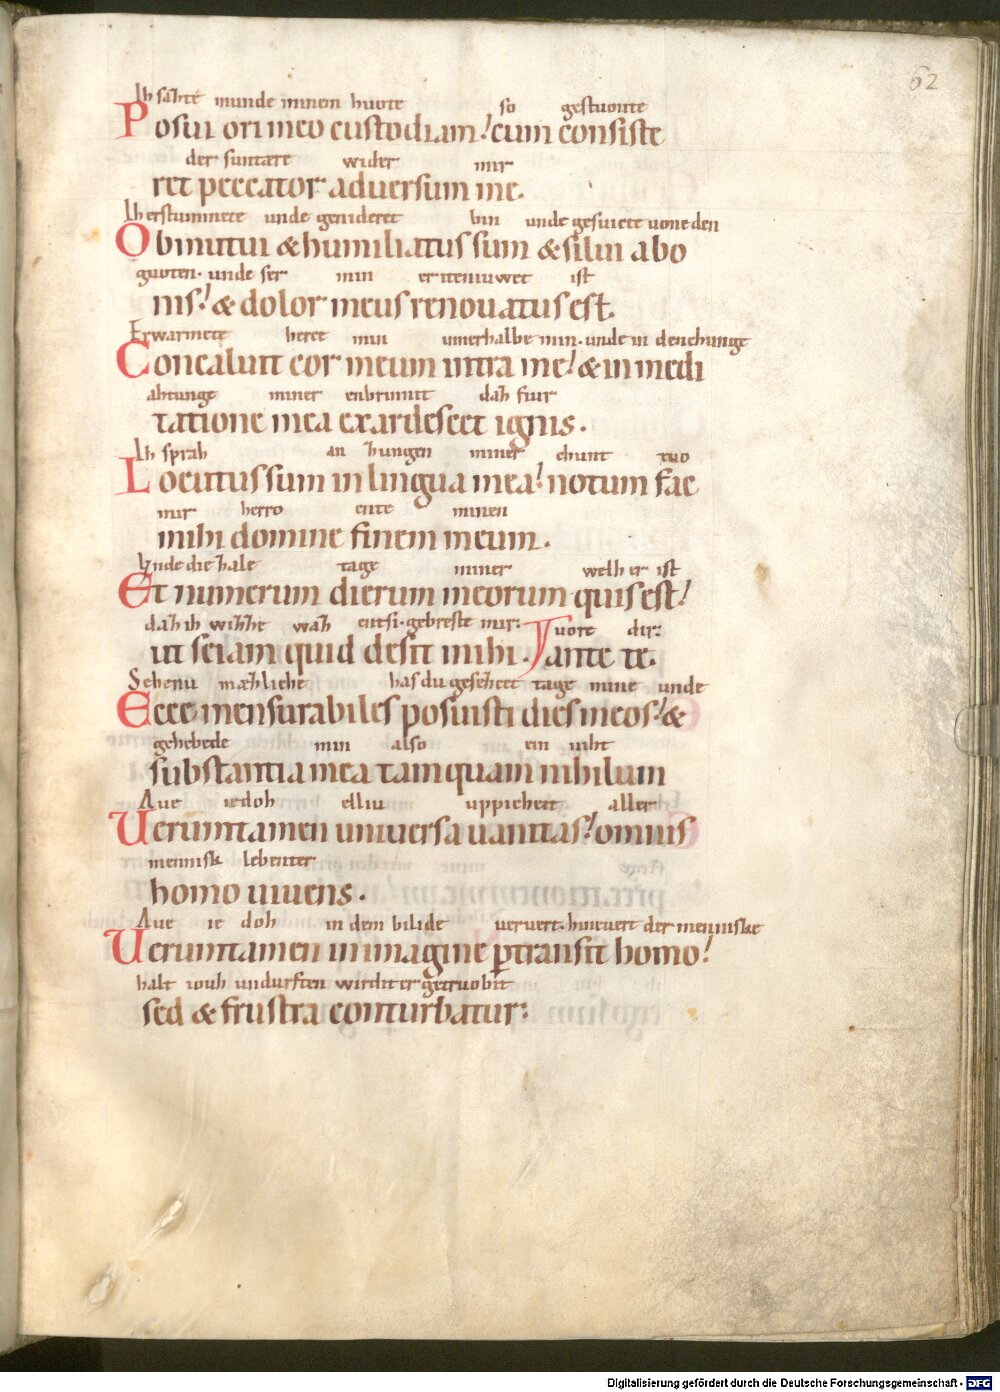 62
Ih sazte munde minem huote so gestuonte
Posui ori meo custodiam! cum consiste
der suntare wider mir
ret peccator adversum me.
Ih erstummete unde genideret bin unde gesuiete uone den
Obmutui & humiliatus sum & silui a bo
guoten. unde ser min er iteniuwet ist
nis! & dolor meus renouatus est.
Erwarmete herce min innerhalbe min. unde in dere hunge
Concaluit cor meum intra me! & in medi
ahtunge miner enbrinnit daz fiur
tatione mea exardescet ignis.
Ih sprah an zungen miner chunt tuo
Locutus sum in lingua mea! notum fac
mir herro ente minen
mihi domine finem meum.
Unde die zale tage miner welh er ist
Et numerum dierum meorum quis est!
daz ih wizze waz entsi. gebreste mir: uore dir:
ut sciam quid desit mihi. ante te.
Sehenu mæzliche has du gesezcet tage mine unde
Ecce mensurabiles posuisti dies meos! &
gehebede min also ein niht
substantia mea tamquam nihilum
Aue iedoh elliu uppicheit aller
Ueruntamen universa vanitas! omnis
mennisk lebenter
homo vivens.
Aue ie doh in dem bilide ververt. hinevert der menniske
Ueruntamen in imagine ptransit homo!
halt iouh undurften wirdit er getruobit
sed & frustra conturbatur:
Digitalisierung gefördert durch die Deutsche Forschungsgemeinschaft - DFG